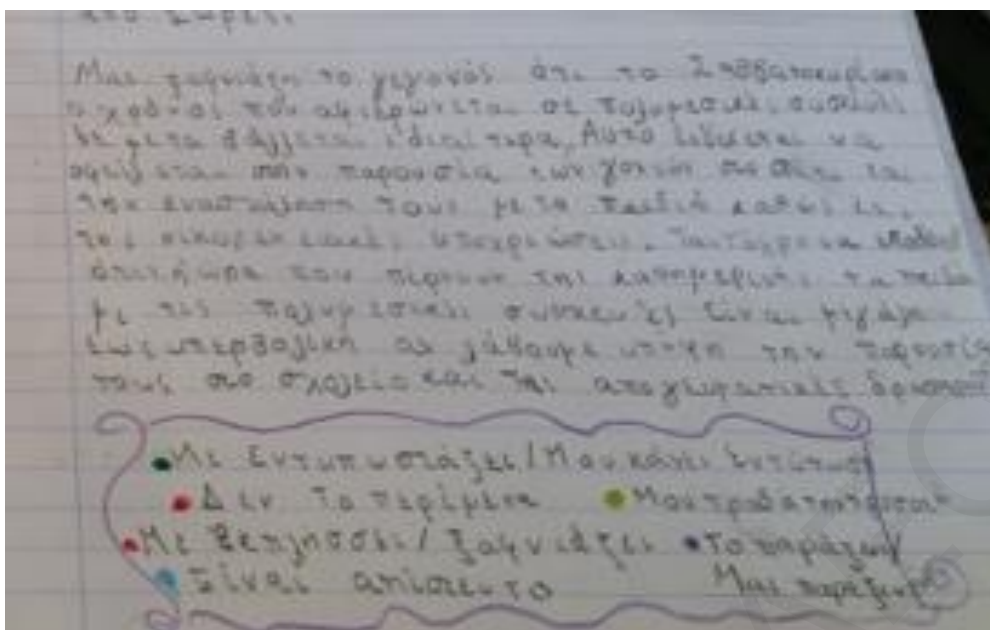 από 2 ώρες.
Μας ξαφνιάζει το γεγονός ότι το Σαββατοκύριακο
ο χρόνος που αφιερώνεται σε πολυμεσικές συσκευές
δε μεταβάλλεται ιδιαίτερα. Αυτό ενδέχεται να
οφείλεται στην παρουσία των γονιών στο σπίτι και
την ενασχόληση τους με τα παιδιά καθώς και
τις οικογενειακές υποχρεώσεις. Ταυτόχρονα
ότι η ώρα που περνούν της καθημερινές τα παιδιά
με τις πολυμεσικές συσκευές είναι μεγάλη
έως υπερβολική αν λάβουμε υπόψη την παρουσία
τους στο σχολείο και τις απογευματινές
Με εντυπωσιάζει / Μου κάνει εντύπωση
Δεν το περίμενα Μου προβληματίζει
Με εκπλήσσει / ξαφνιάζει Το παράξενο
Είναι απίστευτο Μας παραξενεύει